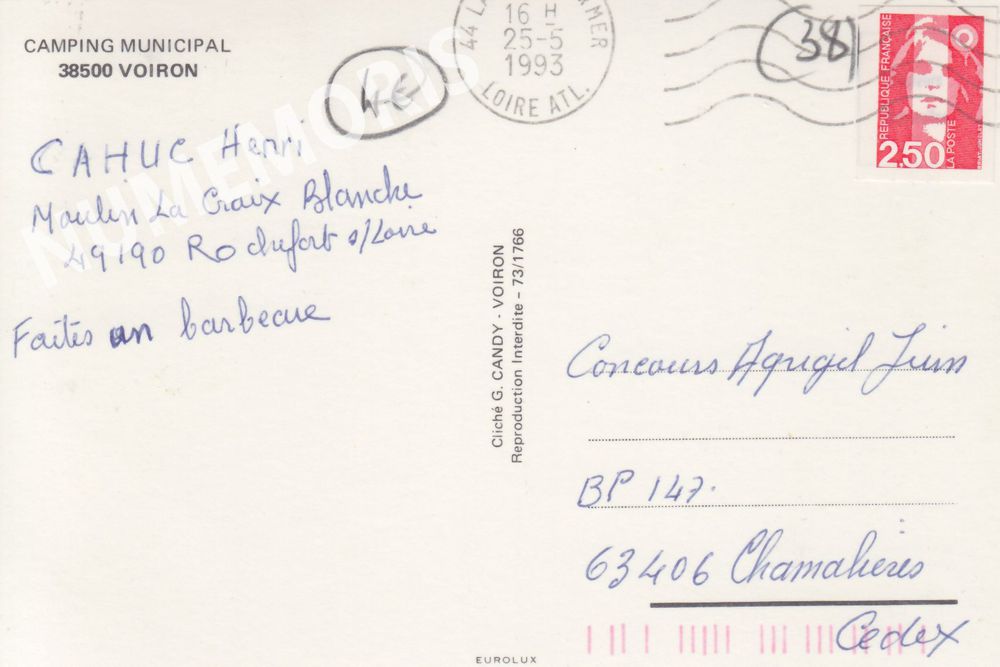 CAMPING MUNICIPAL
38500 VOIRON
4€
CAHUC Henri
Moulin La Croix Blanche
49190 Rochefort s/Loire
Faites un barbecue
NUMEMORIS
Cliché G. CANDY - VOIRON
Reproduction Interdite - 73/1766
16 H
25-5
1993
LOIRE ATL.
38
RÉPUBLIQUE FRANÇAISE
2,50
LA POSTE
Concours Agrigel Juin
BP 147.
63406 Chamalières
Cedex
EUROLUX